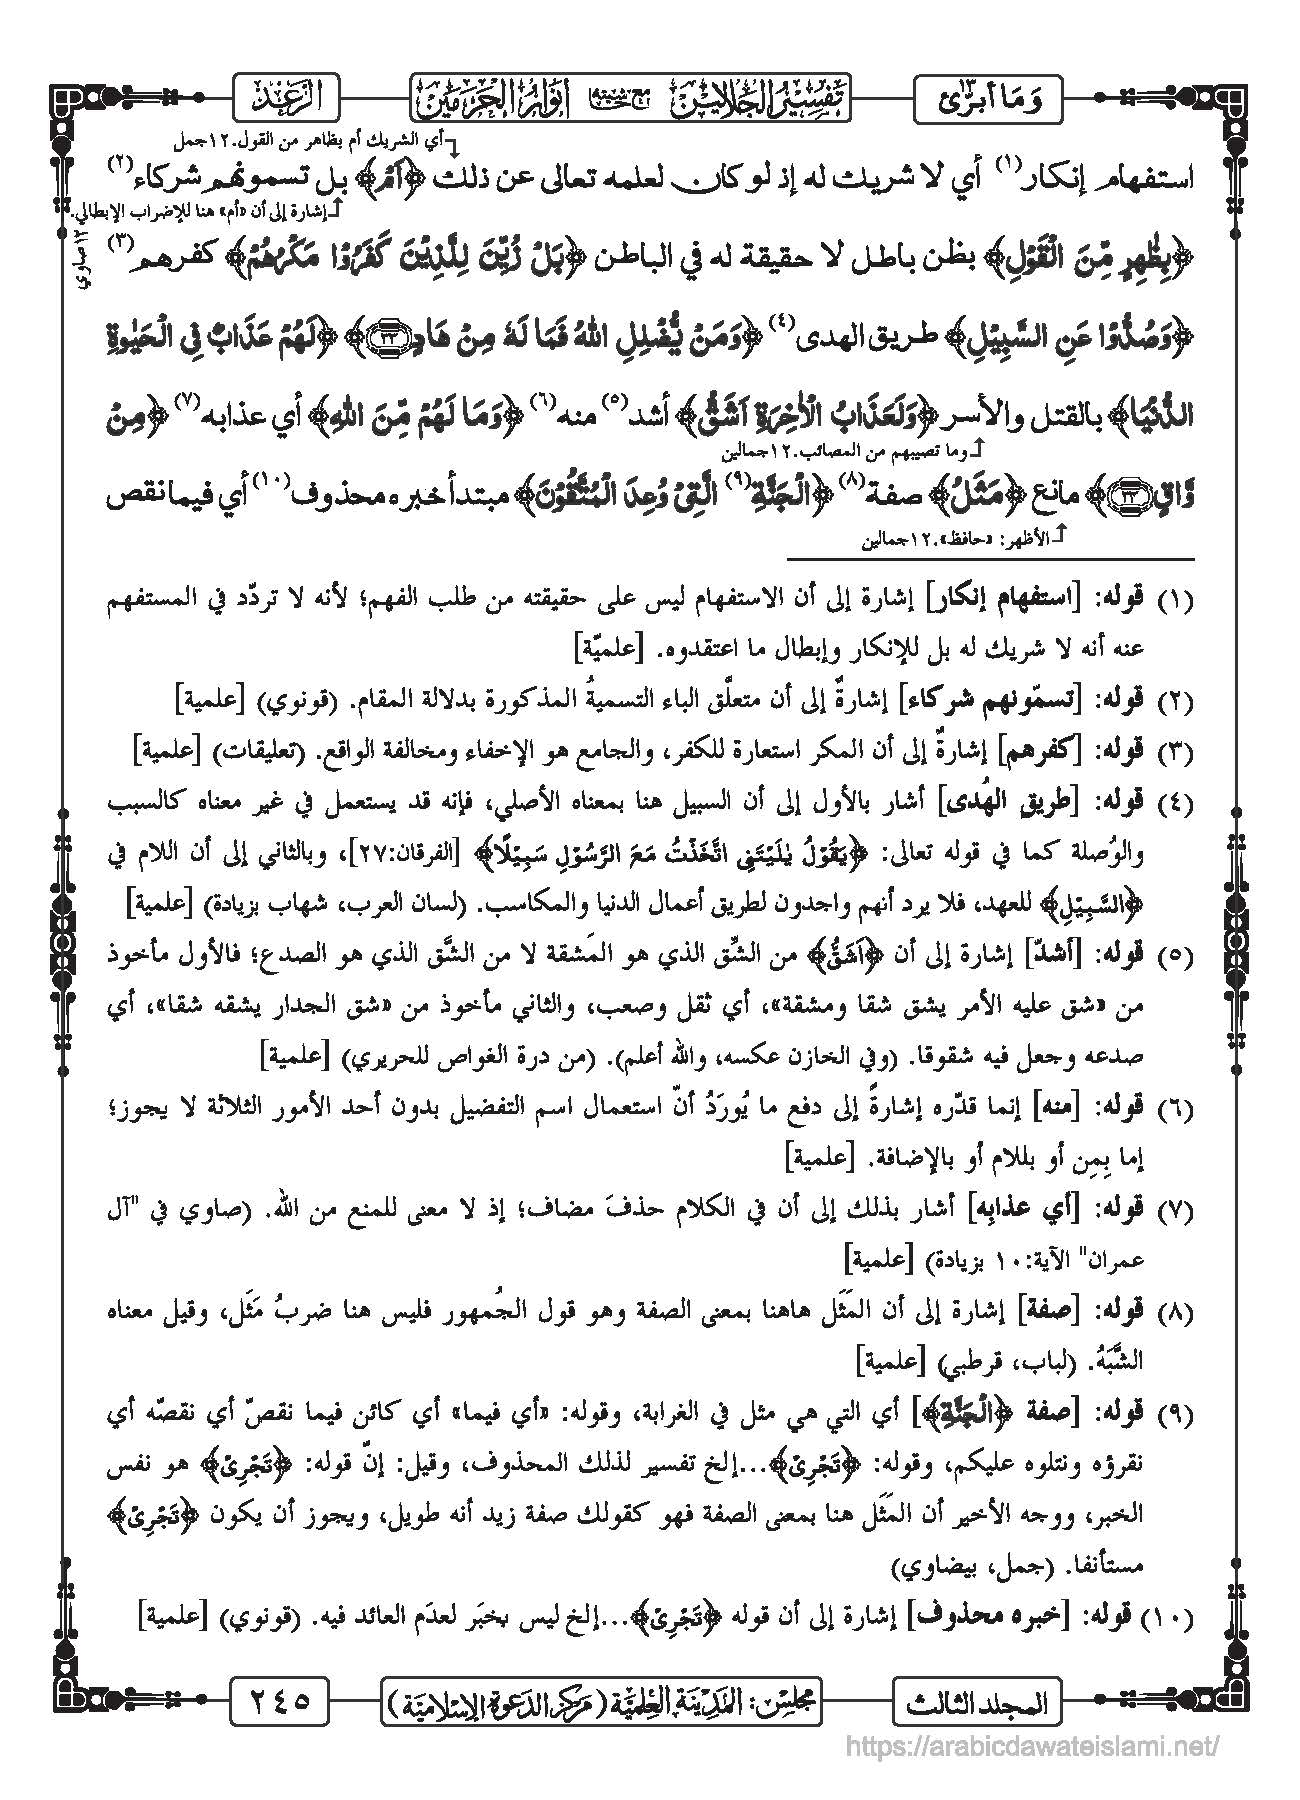 وَمَا أبرّئ ١٣
تفسير الجلالين مع حاشيته أنوار الحرمين
الرعد
أي الشريك أم بظاهر من القول.١٢جمل
استفهام إنكار(١) أي لا شريك له إذ لو كان لعلمه تعالى عن ذلك ﴿اَمْ﴾ بل تسمونهم شركاء(٢)
إشارة إلى أن «أم» هنا للإضراب الإبطالي.
١٢صاوي
﴿بِظٰهِرٍ مِّنَ الْقَوْلِ﴾ بظن باطل لا حقيقة له في الباطن ﴿بَلْ زُيِّنَ لِلَّذِيْنَ كَفَرُوْا مَكْرُهُمْ﴾ كفرهم(٣)
﴿وَصُدُّوْا عَنِ السَّبِيْلِ﴾ طريق الهدى(٤) ﴿وَمَنْ يُّضْلِلِ اللهُ فَمَا لَهٗ مِنْ هَادٍ ٣٣﴾ ﴿لَهُمْ عَذَابٌ فِى الْحَيٰوةِ
الدُّنْيَا﴾ بالقتل والأسر ﴿وَلَعَذَابُ الْاٰخِرَةِ اَشَقُّ﴾ أشد(٥) منه(٦) ﴿وَمَا لَهُمْ مِّنَ اللهِ﴾ أي عذابه(٧) ﴿مِنْ
وما تصيبهم من المصائب.١٢جمالين
وَّاقٍ ٣٤﴾ مانع ﴿مَثَلُ﴾ صفة(٨) ﴿الْجَنَّةِ(٩) الَّتِيْ وُعِدَ الْمُتَّقُوْنَ﴾ مبتدأ خبره محذوف(١٠) أي فيما نقص
الأظهر: «حافظ».١٢جمالين
(١) قوله: [استفهام إنكار] إشارة إلى أن الاستفهام ليس على حقيقته من طلب الفهم؛ لأنه لا تردّد في المستفهم
عنه أنه لا شريك له بل للإنكار وإبطال ما اعتقدوه. [علميّة]
(٢) قوله: [تسمّونهم شركاء] إشارةٌ إلى أن متعلَّق الباء التسميةُ المذكورة بدلالة المقام. (قونوي) [علمية]
(٣) قوله: [كفرهم] إشارةٌ إلى أن المكر استعارة للكفر، والجامع هو الإخفاء ومخالفة الواقع. (تعليقات) [علمية]
(٤) قوله: [طريق الهُدى] أشار بالأول إلى أن السبيل هنا بمعناه الأصلي، فإنه قد يستعمل في غير معناه كالسبب
والوُصلة كما في قوله تعالى: ﴿يَقُوْلُ يٰلَيْتَنِى اتَّخَذْتُ مَعَ الرَّسُوْلِ سَبِيْلًا﴾ [الفرقان:٢٧]، وبالثاني إلى أن اللام في
﴿السَّبِيْلِ﴾ للعهد، فلا يرد أنهم واجدون لطريق أعمال الدنيا والمكاسب. (لسان العرب، شهاب بزيادة) [علمية]
(٥) قوله: [أشدّ] إشارة إلى أن ﴿اَشَقُّ﴾ من الشِّق الذي هو المَشقة لا من الشَّق الذي هو الصدع؛ فالأول مأخوذ
من «شق عليه الأمر يشق شقا ومشقة»، أي ثقل وصعب، والثاني مأخوذ من «شق الجدار يشقه شقا»، أي
صدعه وجعل فيه شقوقا. (وفي الخازن عكسه، والله أعلم). (من درة الغواص للحريري) [علمية]
(٦) قوله: [منه] إنما قدّره إشارةً إلى دفع ما يُورَدُ أنّ استعمال اسم التفضيل بدون أحد الأمور الثلاثة لا يجوز؛
إما بِمِن أو بللام أو بالإضافة. [علمية]
(٧) قوله: [أي عذابِه] أشار بذلك إلى أن في الكلام حذفَ مضاف؛ إذ لا معنى للمنع من الله. (صاوي في "آل
عمران" الآية:١٠ بزيادة) [علمية]
(٨) قوله: [صفة] إشارة إلى أن المَثَل هاهنا بمعنى الصفة وهو قول الجُمهور فليس هنا ضربُ مَثَل، وقيل معناه
الشَّبَهُ. (لباب، قرطبي) [علمية]
(٩) قوله: [صفة ﴿الْجَنَّةِ﴾] أي التي هي مثل في الغرابة، وقوله: «أي فيما» أي كائن فيما نقصّ أي نقصّه أي
نقرؤه ونتلوه عليكم، وقوله: ﴿تَجْرِىْ﴾...إلخ تفسير لذلك المحذوف، وقيل: إنّ قوله: ﴿تَجْرِىْ﴾ هو نفس
الخبر، ووجه الأخير أن المَثَل هنا بمعنى الصفة فهو كقولك صفة زيد أنه طويل، ويجوز أن يكون ﴿تَجْرِىْ﴾
مستأنفا. (جمل، بيضاوي)
(١٠) قوله: [خبره محذوف] إشارة إلى أن قوله ﴿تَجْرِىْ﴾...إلخ ليس بخبَر لعدَم العائد فيه. (قونوي) [علمية]
المجلد الثالث
مجلس: المدينة العلمية (مركز الدعوة الإسلامية)
٢٤٥
https://arabicdawateislami.net/